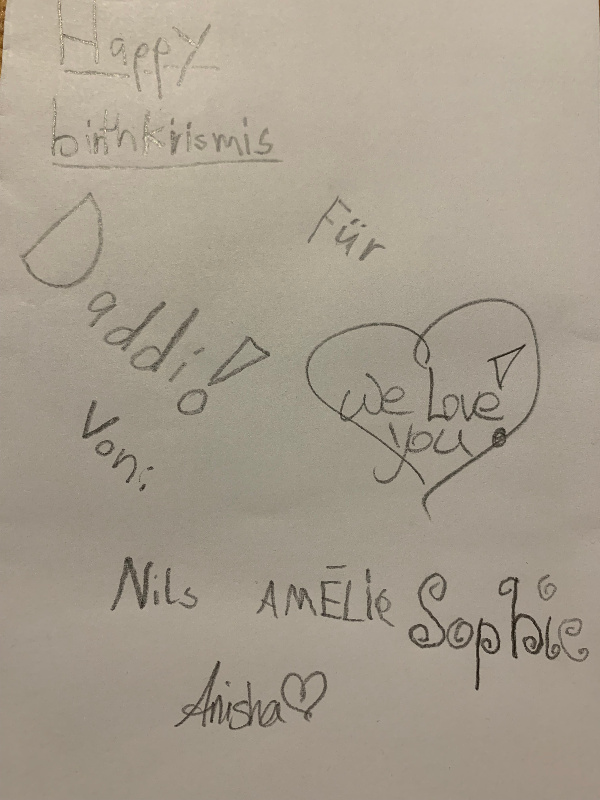 Happy
birthkrismis
Für
Daddio!
We Love
you!
Von:
Nils AMĒLiE Sophie
Anisha♡